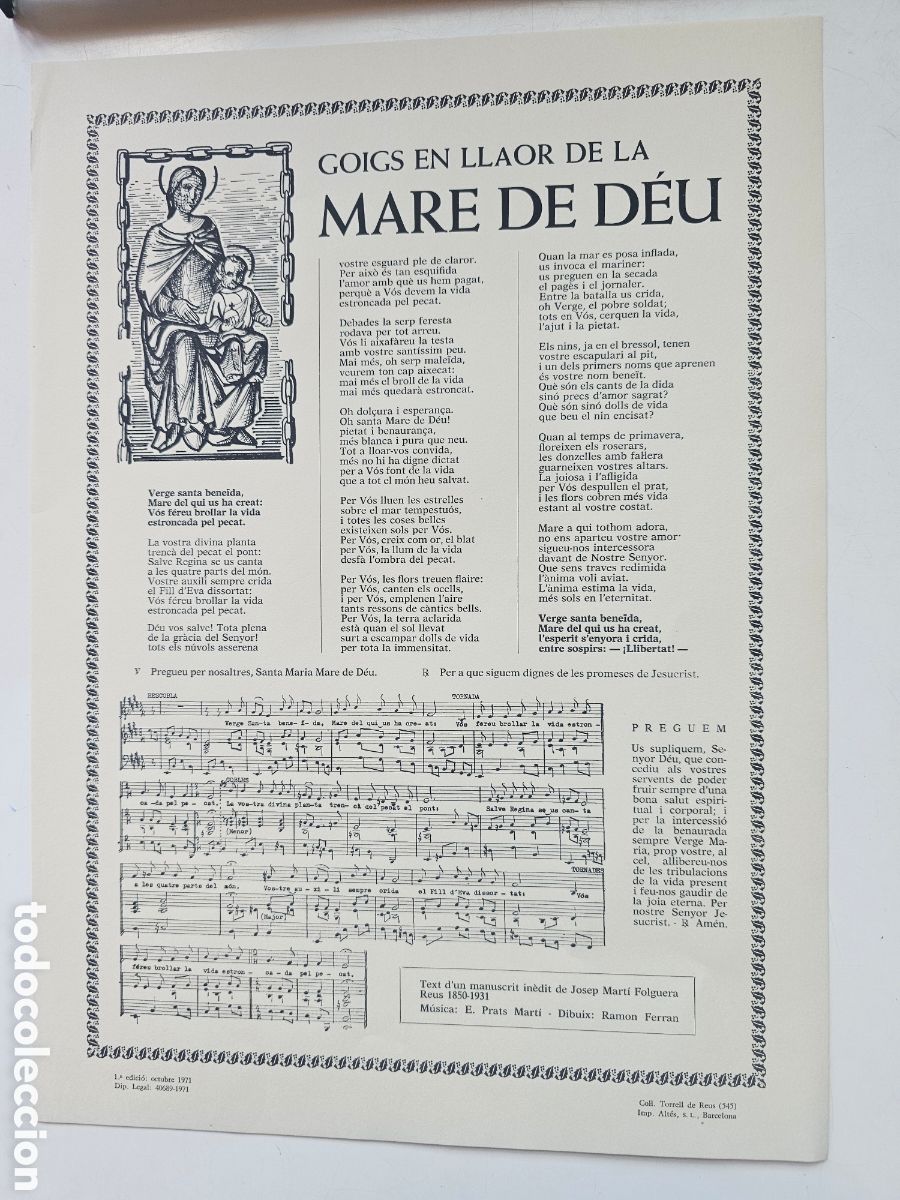 GOIGS EN LLAOR DE LA
MARE DE DÉU
Verge santa beneïda,
Mare del qui us ha creat:
Vós féreu brollar la vida
estroncada pel pecat.
La vostra divina planta
trencà del pecat el pont:
Salve Regina se us canta
a les quatre parts del món.
Vostre auxili sempre crida
el Fill d'Eva dissortat:
Vós féreu brollar la vida
estroncada pel pecat.
Déu vos salve! Tota plena
de la gràcia del Senyor!
tots els núvols asserena
vostre esguard ple de claror.
Per això és tan esquifida
l'amor amb què us hem pagat,
perquè a Vós devem la vida
estroncada pel pecat.
Debades la serp feresta
rodava per tot arreu.
Vós li aixafàreu la testa
amb vostre santíssim peu.
Mai més, oh serp maleïda,
veurem ton cap aixecat:
mai més el broll de la vida
mai més quedarà estroncat.
Oh dolçura i esperança.
Oh santa Mare de Déu!
pietat i benaurança,
més blanca i pura que neu.
Tot a lloar-vos convida,
més no hi ha digne dictat
per a Vós font de la vida
que a tot el món heu salvat.
Per Vós lluen les estrelles
sobre el mar tempestuós,
i totes les coses belles
existeixen sols per Vós.
Per Vós, creix com or, el blat
per Vós, la llum de la vida
desfà l'ombra del pecat.
Per Vós, les flors treuen flaire:
per Vós, canten els ocells,
i per Vós, emplenen l'aire
tants ressons de càntics bells.
Per Vós, la terra aclarida
està quan el sol llevat
surt a escampar dolls de vida
per tota la immensitat.
Quan la mar es posa inflada,
us invoca el mariner:
us preguen en la secada
el pagès i el jornaler.
Entre la batalla us crida,
oh Verge, el pobre soldat;
tots en Vós, cerquen la vida,
l'ajut i la pietat.
Els nins, ja en el bressol, tenen
vostre escapulari al pit,
i un dels primers noms que aprenen
és vostre nom beneït.
Què són els cants de la dida
sinó precs d'amor sagrat?
Què són sinó dolls de vida
que beu el nin encisat?
Quan al temps de primavera,
floreixen els roserars,
les donzelles amb fal·lera
guarneixen vostres altars.
La joiosa i l'afligida
per Vós despullen el prat,
i les flors cobren més vida
estant al vostre costat.
Mare a qui tothom adora,
no ens aparteu vostre amor·
sigueu-nos intercessora
davant de Nostre Senyor.
Que sens traves redimida
l'ànima voli aviat.
L'ànima estima la vida,
més sols en l'eternitat.
Verge santa beneïda,
Mare del qui us ha creat,
l'esperit s'enyora i crida,
entre sospirs: — ¡Llibertat! —
℣ Pregueu per nosaltres, Santa Maria Mare de Déu. ℟ Per a que siguem dignes de les promeses de Jesucrist.
RESCOBLA TORNADA
Verge San-ta bene-ï-da, Mare del qui us ha cre-at: Vós féreu brollar la vida estron-
COBLES
ca-da pel pe-cat. La vos-tra divina plan-ta tren-cà del pecat el pont: Salve Regina se us can-ta
(Menor)
TORNADES
a les quatre parts del món. Vos-tre au-xi-li sempre crida el Fill d'Eva dissor-tat: Vós
(Major)
féreu brollar la vida estron-ca-da pel pe-cat.
PREGUEM
Us supliquem, Se-
nyor Déu, que con-
cediu als vostres
servents de poder
fruir sempre d'una
bona salut espiri-
tual i corporal; i
per la intercessió
de la benaurada
sempre Verge Ma-
ria, prop vostre, al
cel, allibereu-nos
de les tribulacions
de la vida present
i feu-nos gaudir de
la joia eterna. Per
nostre Senyor Je-
sucrist. - ℟ Amén.
Text d'un manuscrit inèdit de Josep Martí Folguera
Reus 1850-1931
Música: E. Prats Martí - Dibuix: Ramon Ferran
1.ª edició: octubre 1971
Dip. Legal: 40689-1971
Col·l. Torrell de Reus (545)
Imp. Altés, s. L., Barcelona
todocoleccion